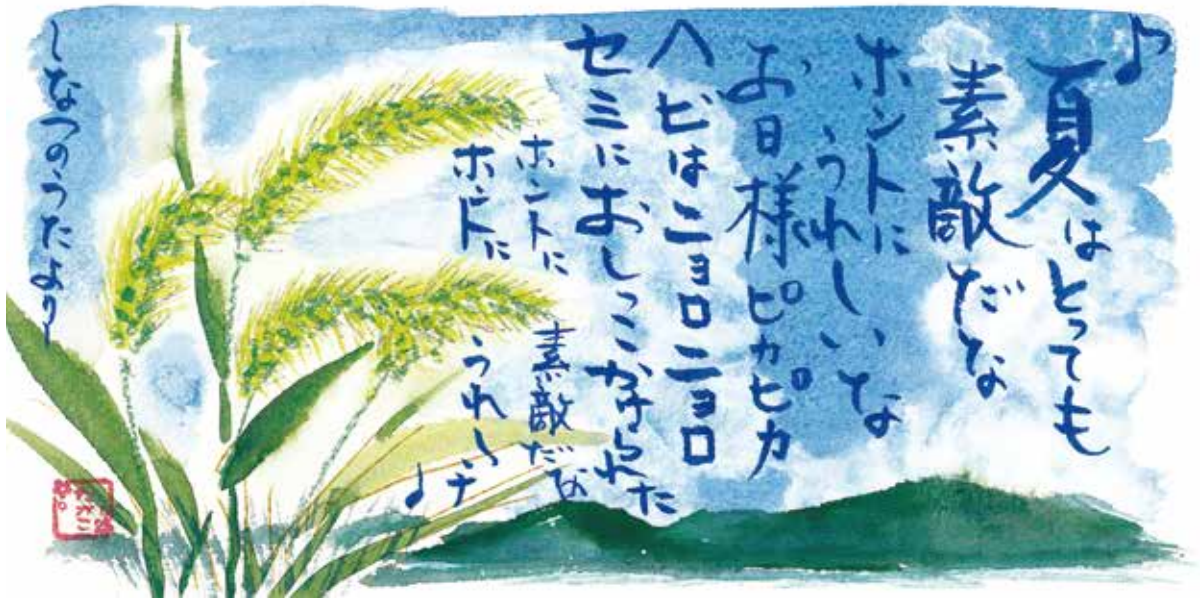 ♪夏はとっても
素敵だな
ホントに
うれしいな
お日様ピカピカ
ヘビはニョロニョロ
セミにおしっこかけられた
ホントに
素敵だな
ホントに
うれしーナ♪
〜なつのうたより〜